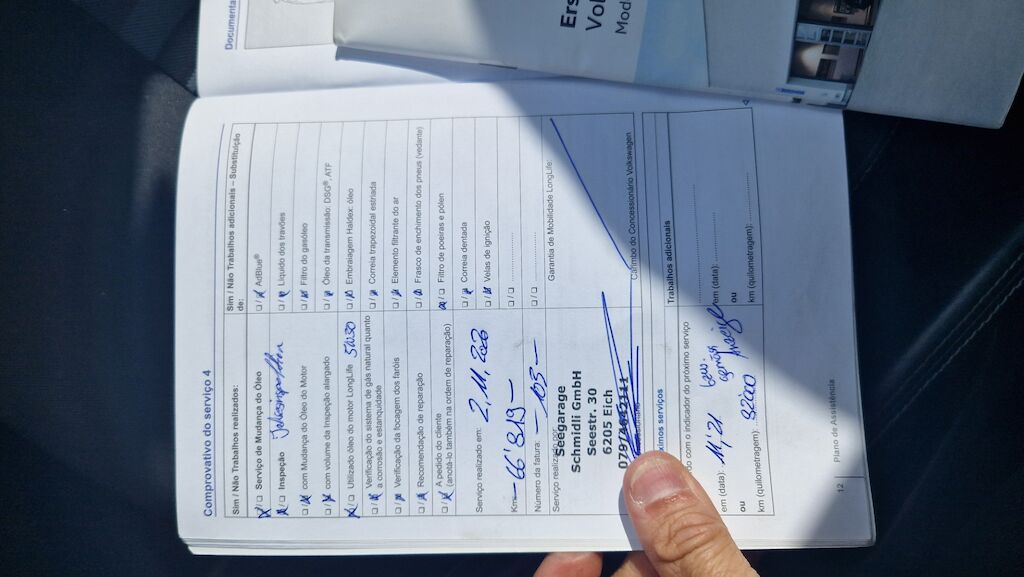 Documenta
Ers
Vol
Mod
Comprovativo do serviço 4
Sim / Não Trabalhos realizados:
Serviço de Mudança do Óleo
Inspeção
com Mudança do Óleo do Motor
com volume da Inspeção alargado
Utilizado óleo do motor LongLife 5W30
Verificação do sistema de gás natural quanto
a corrosão e estanquidade
Verificação da focagem dos faróis
Recomendação de reparação
A pedido do cliente
(anotá-lo também na ordem de reparação)
Serviço realizado em: 2.11.2020
Km: – 66'819 –
Número da fatura: – 103 –
Serviço realizado por:
Seegarage
Schmidli GmbH
Seestr. 30
6205 Eich
Sim / Não Trabalhos adicionais – Substituição
de:
AdBlue®
Líquido dos travões
Filtro do gasóleo
Óleo da transmissão: DSG®, ATF
Embraiagem Haldex: óleo
Correia trapezoidal estriada
Elemento filtrante do ar
Frasco de enchimento dos pneus (vedante)
Filtro de poeiras e pólen
Correia dentada
Velas de ignição
Garantia de Mobilidade LongLife:
Carimbo do Concessionário Volkswagen
ximos serviços
do com o indicador do próximo serviço
em (data): 11.21
ou
km (quilometragem): 92000
Trabalhos adicionais
em (data):
ou
km (quilometragem):
12
Plano de Assistência